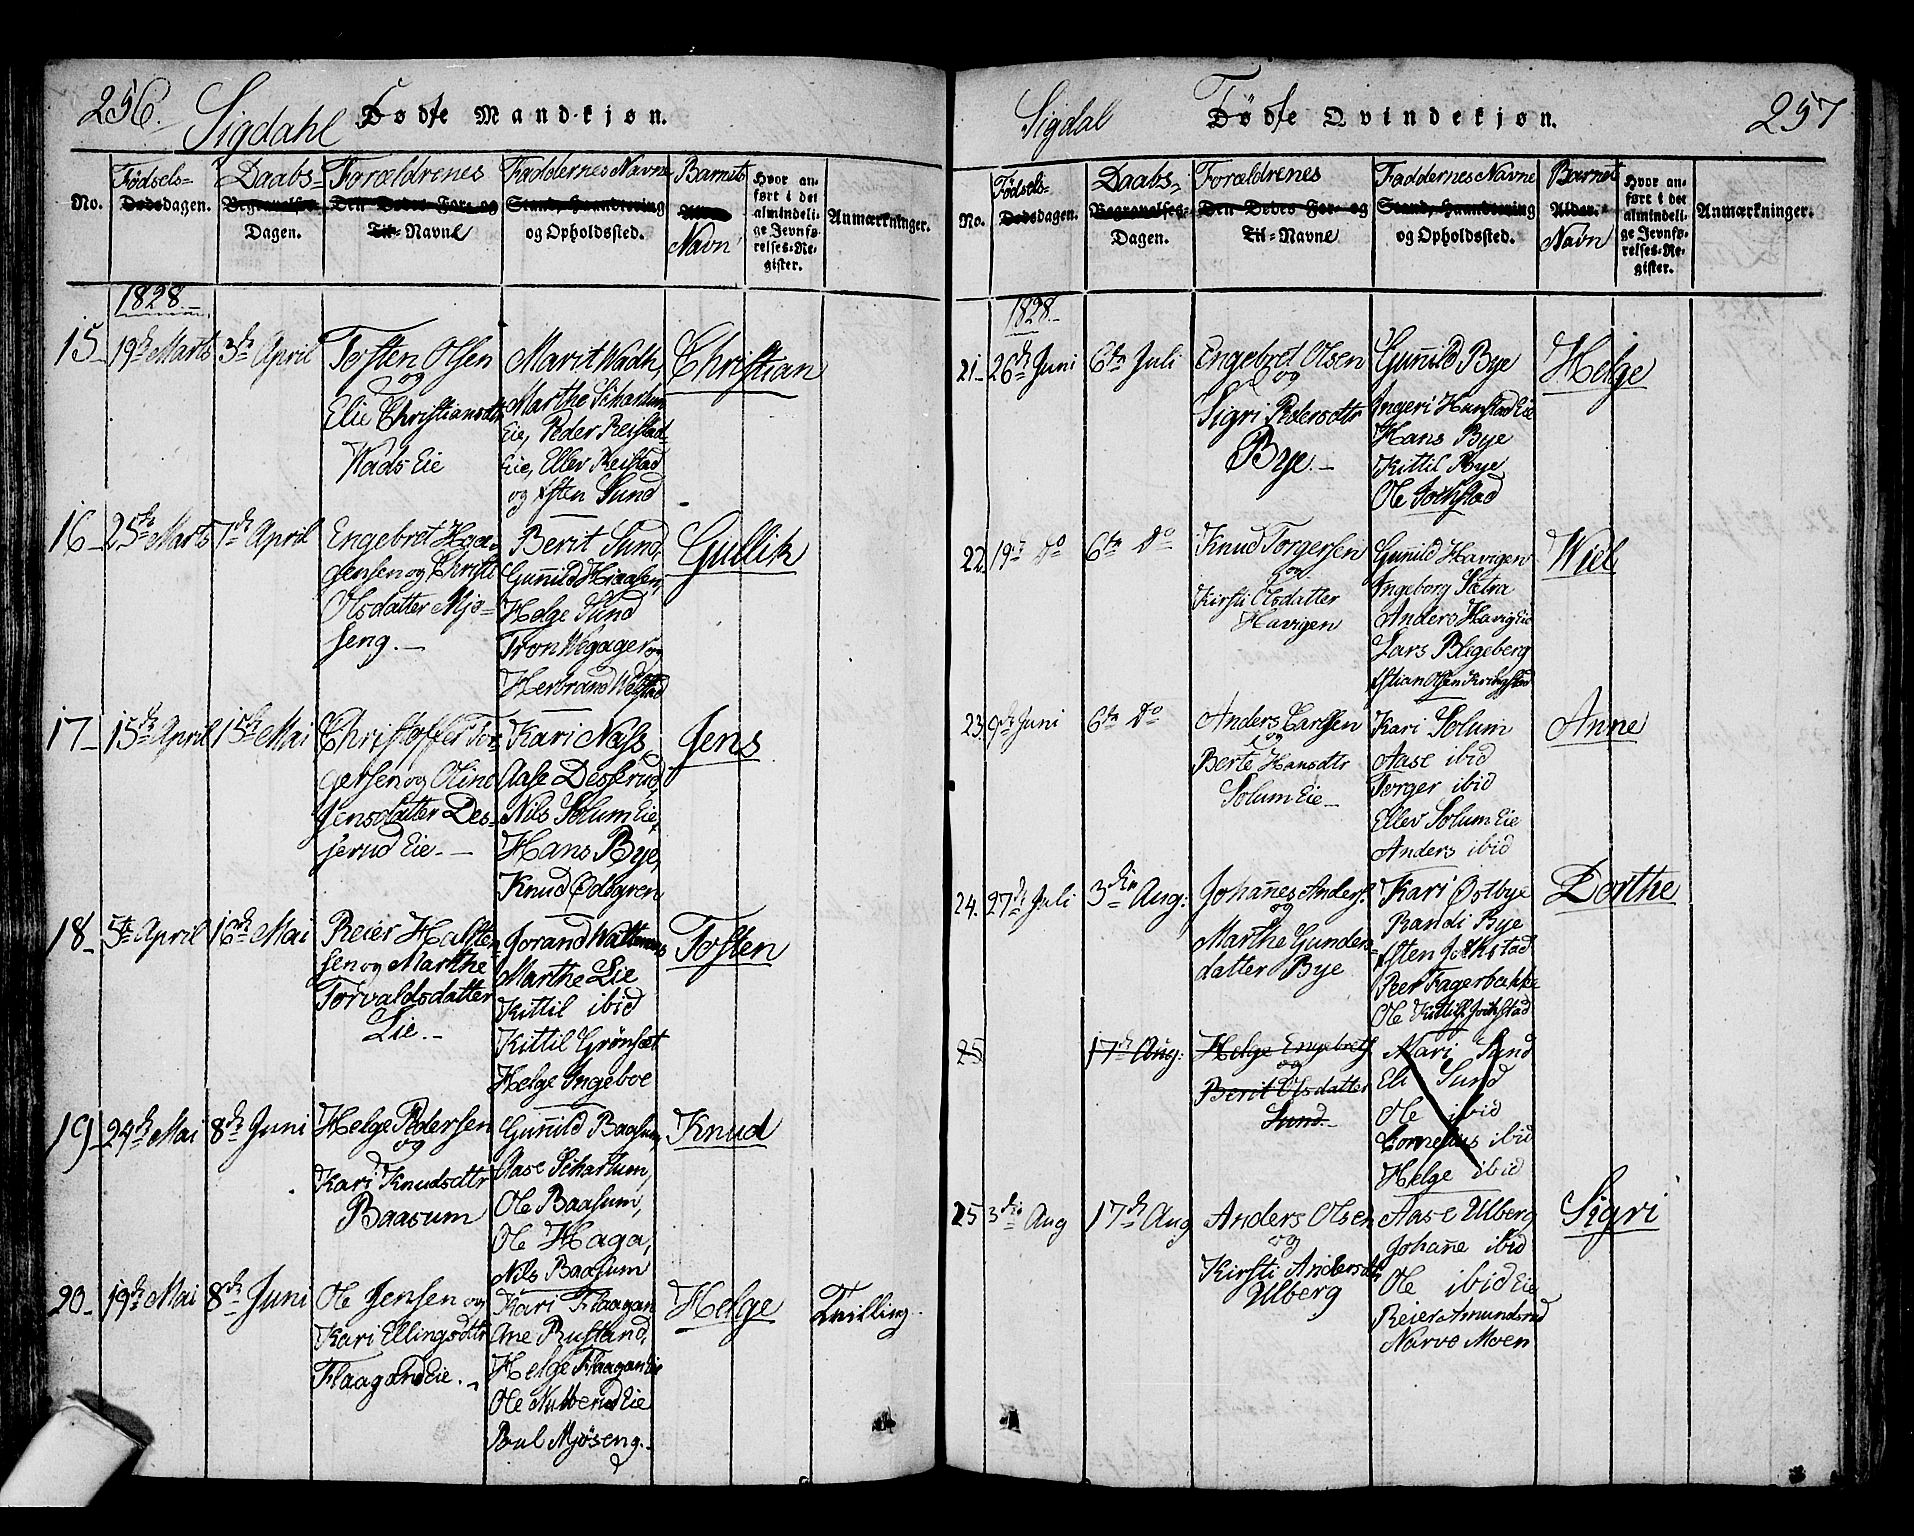 256.
Sigdahl Fødte Mandkjøn.
No.
Fødsels=
Dødsdagen.
Daabs-
Begravelses-
Dagen.
Forældrenes
Den Dødes For- og
Til-Navne
Faddernes Navne
Stand, Haandtering
og Opholdssted.
Barnets
Alder.
Navn
Hvor an-
ført i det
almindeli-
ge Jevnfø-
relses-Re-
gister.
Anmærkninger.
1828.
15 19de Marts 3de April
Tosten Olsen
og
Elie Christiansdtr
Wads Eie
Marit Wadh,
Marthe Schartum
Eie, Peder Reistad
Eie, Ellev Reistad
og Østen Sund
Christian
16 25de Marts 7de April
Engebret Haa-
gensen og Christi
Olsdatter Mjø-
seng.
Berit Sund,
Guñild Haasen,
Helge Sund
Tron Wegager og
Herbrand Welstad
Gullik
17 15de April 15de Mai
Christoffer Tor-
gersen og Oline
Jensdatter Des-
serud Eie.
Kari Nass,
Aase Desserud,
Nils Solum Eie,
Hans Bye,
Knud Odegren
Jens
18 5te April 16de Mai
Reier Halsten-
sen og Marthe
Torvaldsdatter
Lie.
Jorand Wattenaas
Marthe Lie
Kittil ibid
Kittil Grønsæt
Helge Ingeboe
Tosten
19 24de Mai 8de Juni
Helge Pedersen
og
Kari Knudsdtr
Baasum
Guñild Baasum,
Aase Schartum,
Ole Baasum,
Ole Haga,
Nils Baasum
Knud
20 19de Mai 8de Juni
Ole Jensen og
Kari Ellingsdtr
Flaagan Eie.
Kari Flaagan
Ane Rustand,
Helge Flaagan Eie
Ole Nubberud Eie
Paul Mjøseng.
Helge
Tvilling.
Sigdal Fødte Qvindekjøn.
257
No.
Fødsels-
Dødsdagen.
Daabs-
Begravelses-
Dagen.
Forældrenes
Den Dødes For- og
Til-Navne
Faddernes Navne
Stand, Haandtering
og Opholdssted.
Barnets
Alder.
Navn
Hvor an-
ført i det
almindeli-
ge Jevnfø-
relses-Re-
gister.
Anmærkninger.
1828
21 26de Juni 6te Juli
Engebret Olsen
og
Sigri Pedersdtr
Bye.
Guñild Bye
Ingeri Hunstad Eie
Hans Bye
Kittil Bye
Ole Jochstad
Helge
22 19de Do 6te Do
Knud Torgersen
og
Kirsti Olsdatter
Havigen
Gunild Havigen
Ingeborg Sætra
Anders Havig Eie
Lars Blegeberg
Stian Olsen
Wiel
23 9de Juni 6te Do
Anders Carlsen
og
Berte Hansdtr
Solum Eie
Kari Solum
Aase ibid
Torger ibid
Ellev Solum Eie
Anders ibid
Anne
24. 27de Juli 3die Aug:
Johañes Anders.
og
Marthe Gunders-
datter Bye
Kari Østbye
Randi Bye
Østen Jochstad
Peer Fagerbakke
Ole Kittils. Jochstad
Dorthe
25 17de Aug:
Helge Engebrets.
og
Berit Olsdatter
Sund
Mari Sund
Eli Sund
Ole ibid
Cornelius ibid
Helge ibid
25 3die Aug 17de Aug
Anders Olsen
og
Kirsti Andersdtr
Ulberg
Aase Ulberg
Johañe ibid
Ole ibid Eie
Reier Amundsrud
Narvo Moen
Sigri